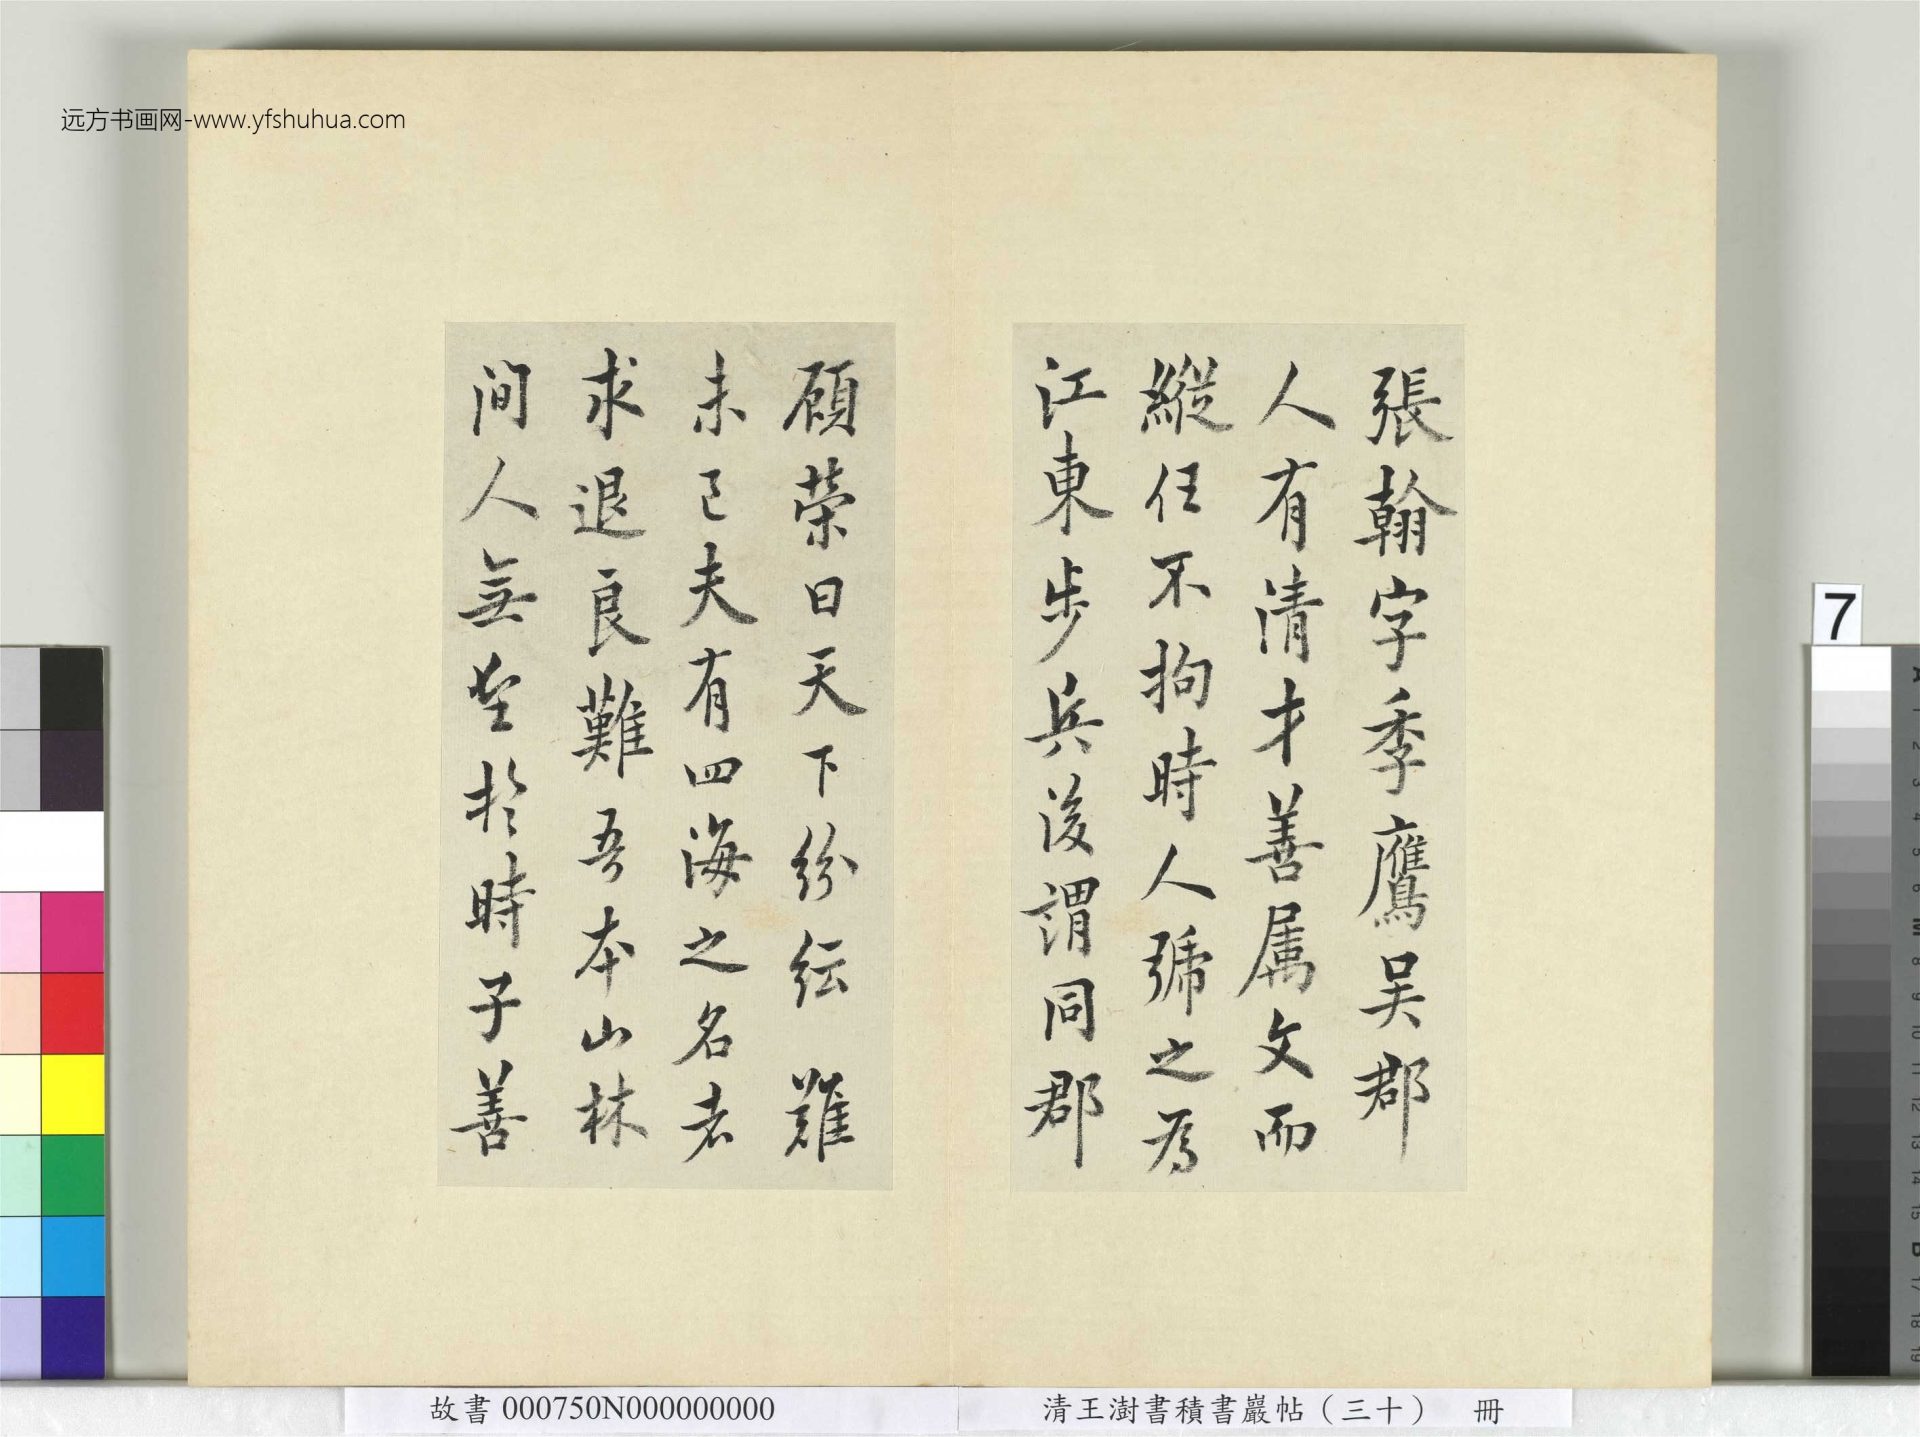 远方书画网-www.yfshuhua.com
張翰字季鷹吴郡
人有清才善属文而
縱任不拘時人號之為
江東步兵後謂同郡
顧榮曰天下紛紜難
未已夫有四海之名者
求退良難吾本山林
间人無望於時子善
7
故書 000750N000000000
清王澍書積書巖帖（三十） 冊
A 1 2 3 4 5 6 M 8 9 10 11 12 13 14 15 B 17 18 19